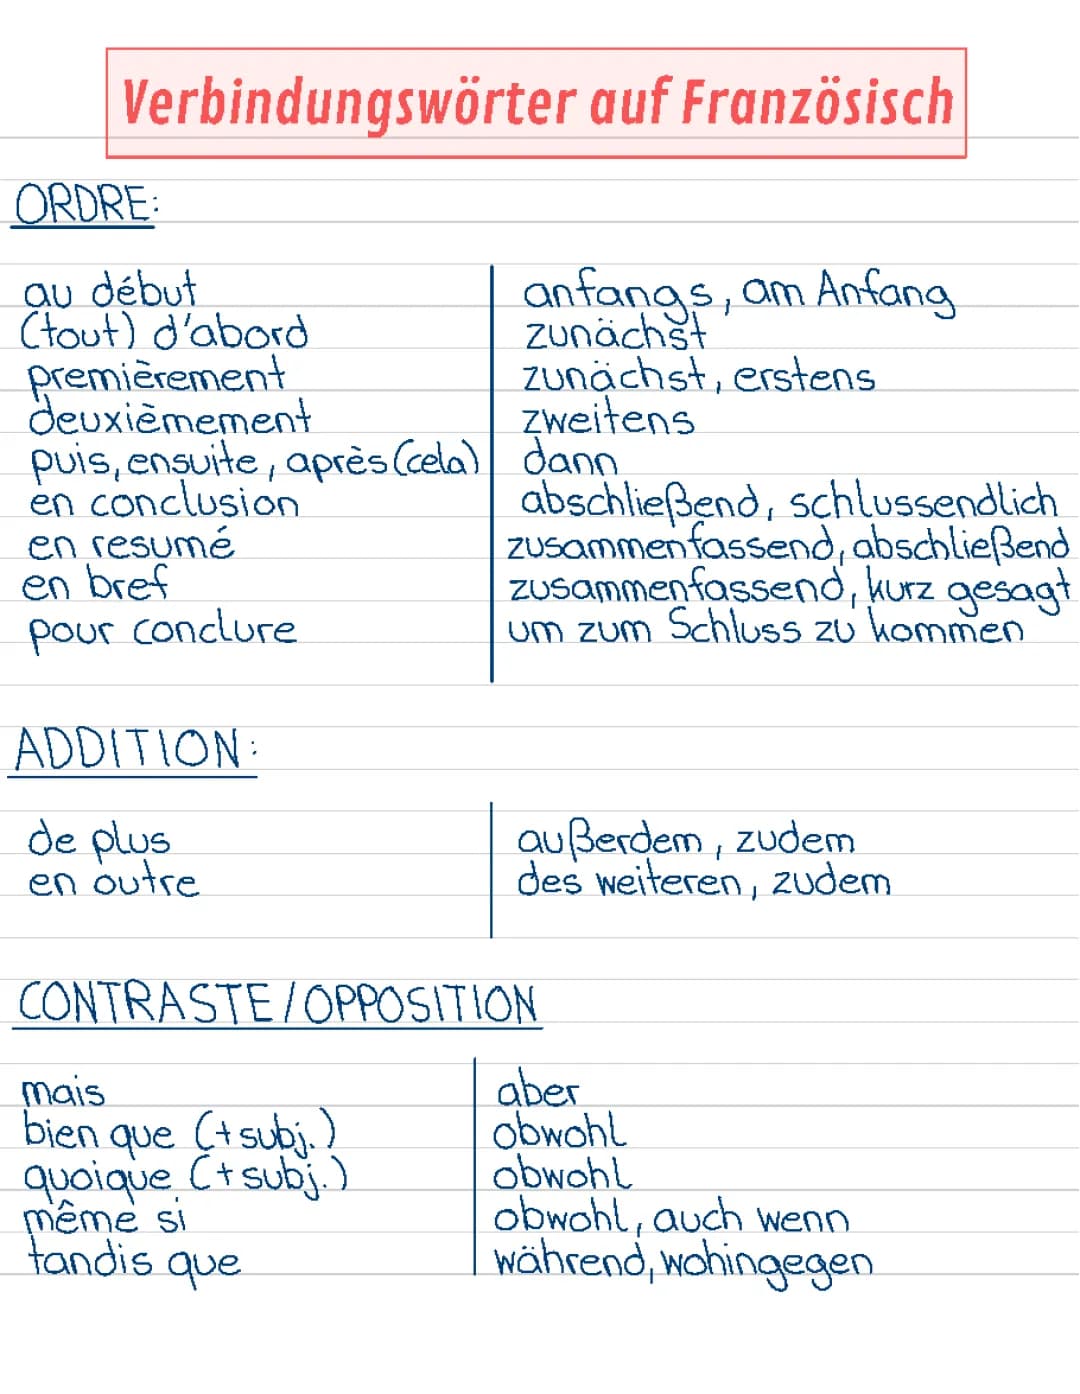 Verbindungswörter auf Französisch
ORDRE:
au début anfangs, am Anfang
(tout) d'abord zunächst
premièrement zunächst, erstens
deuxièmement zweitens
puis, ensuite, après (cela) dann
en conclusion abschließend, schlussendlich
en resumé zusammenfassend, abschließend
en bref zusammenfassend, kurz gesagt
pour conclure um zum Schluss zu kommen
ADDITION:
de plus außerdem, zudem
en outre des weiteren, zudem
CONTRASTE/OPPOSITION
mais aber
bien que (+ subj.) obwohl
quoique (+ subj.) obwohl
même si obwohl, auch wenn
tandis que während, wohingegen